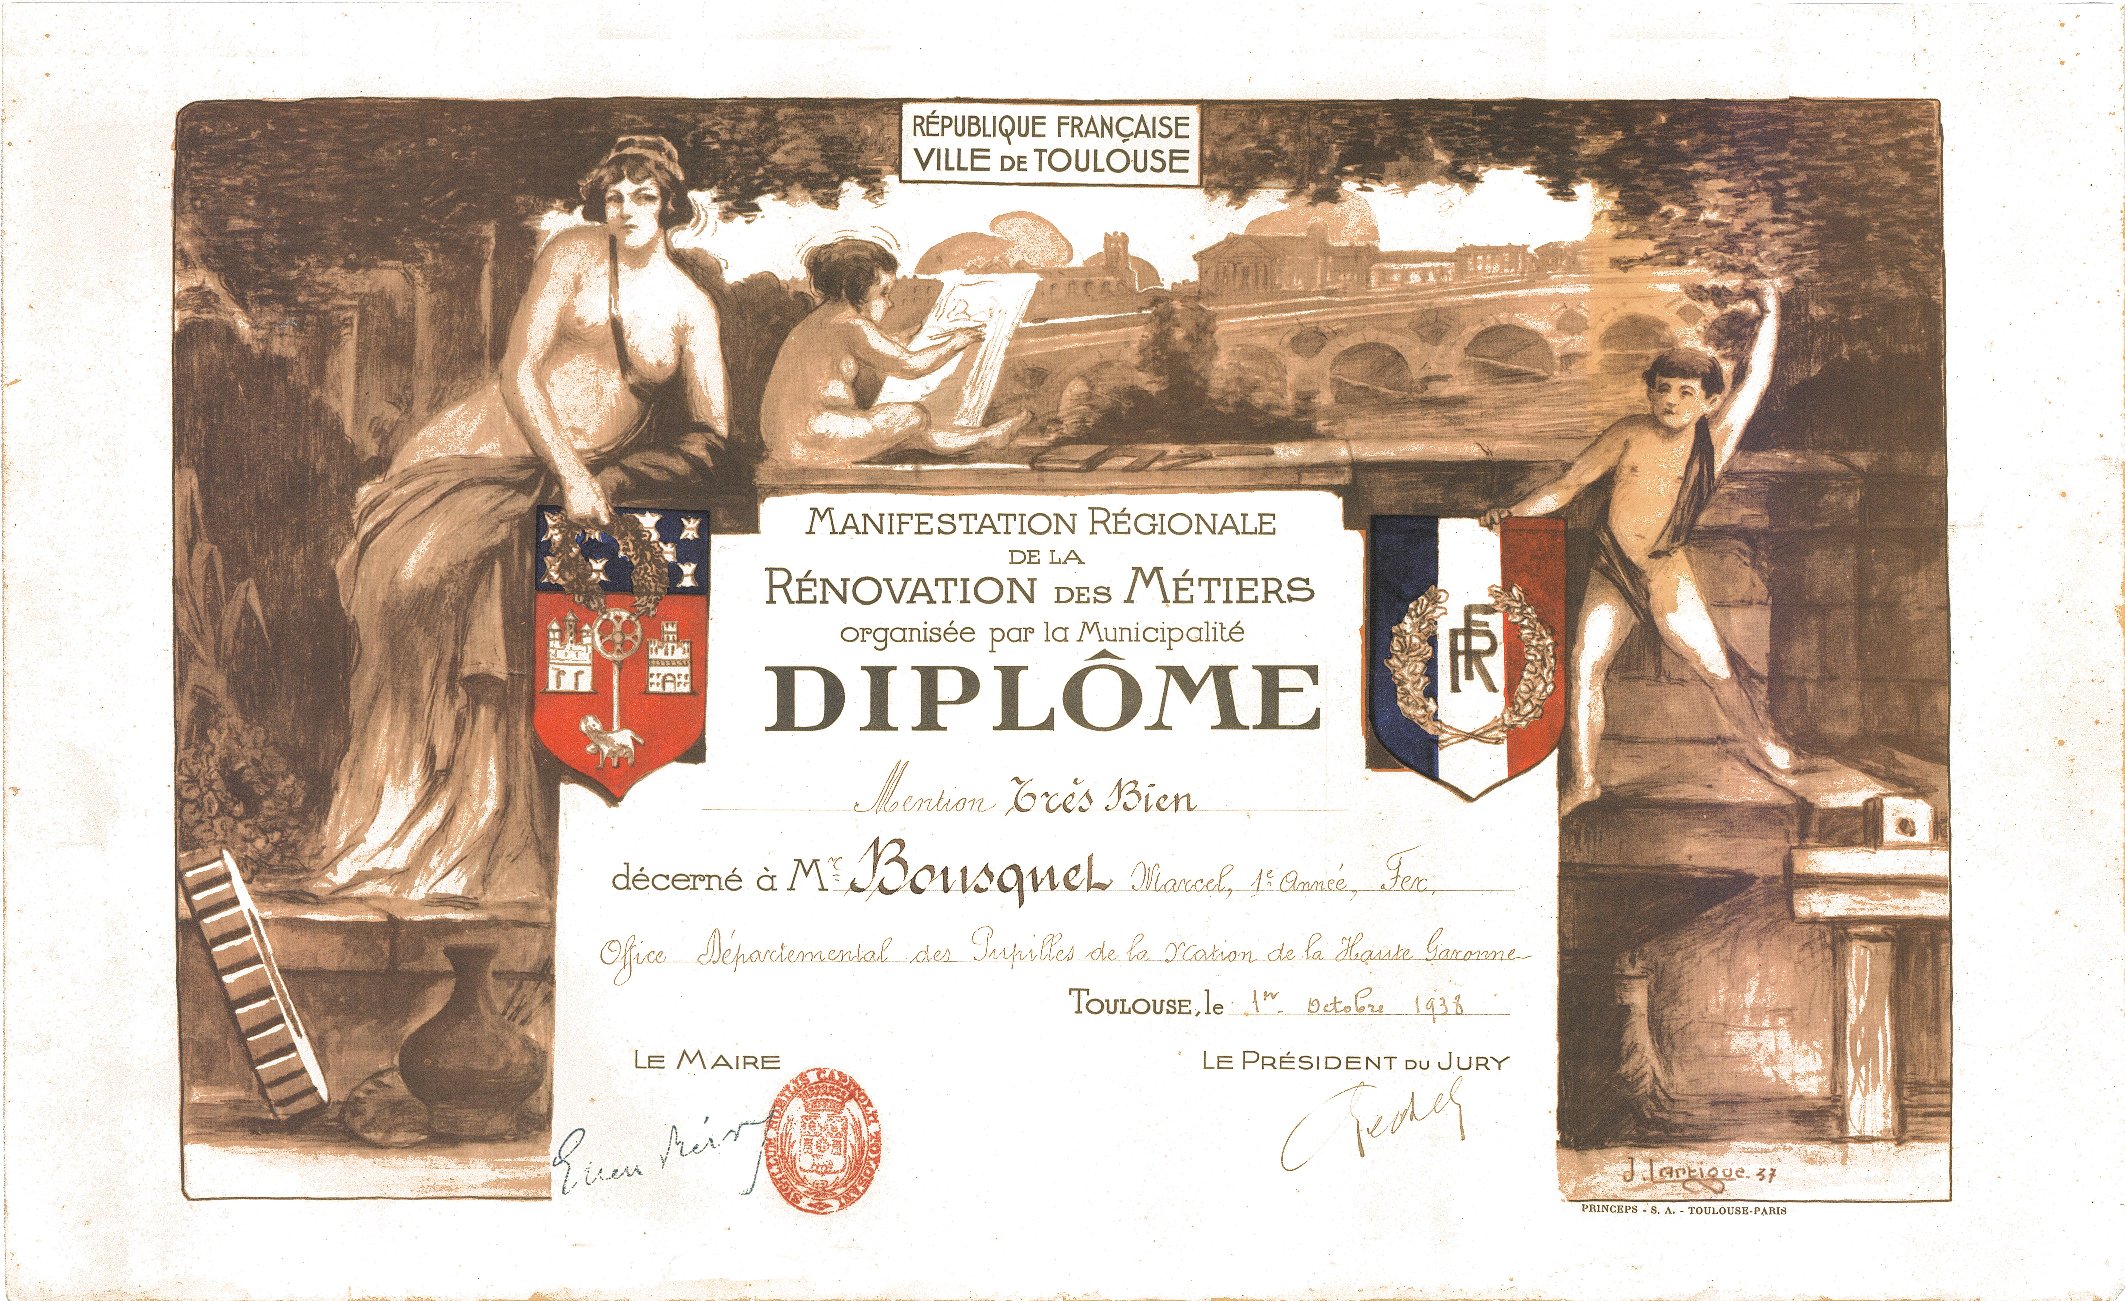 RÉPUBLIQUE FRANÇAISE
VILLE DE TOULOUSE
MANIFESTATION RÉGIONALE
DE LA
RÉNOVATION DES MÉTIERS
organisée par la Municipalité
DIPLÔME
RF
Mention Très Bien
décerné à Mr Bousquet Marcel, 1e Année, Fer,
Office Départemental des Pupilles de la Nation de la Haute Garonne
TOULOUSE, le 1er Octobre 1938
LE MAIRE
LE PRÉSIDENT DU JURY
J. Lartigue. 37
PRINCEPS - S. A. - TOULOUSE-PARIS